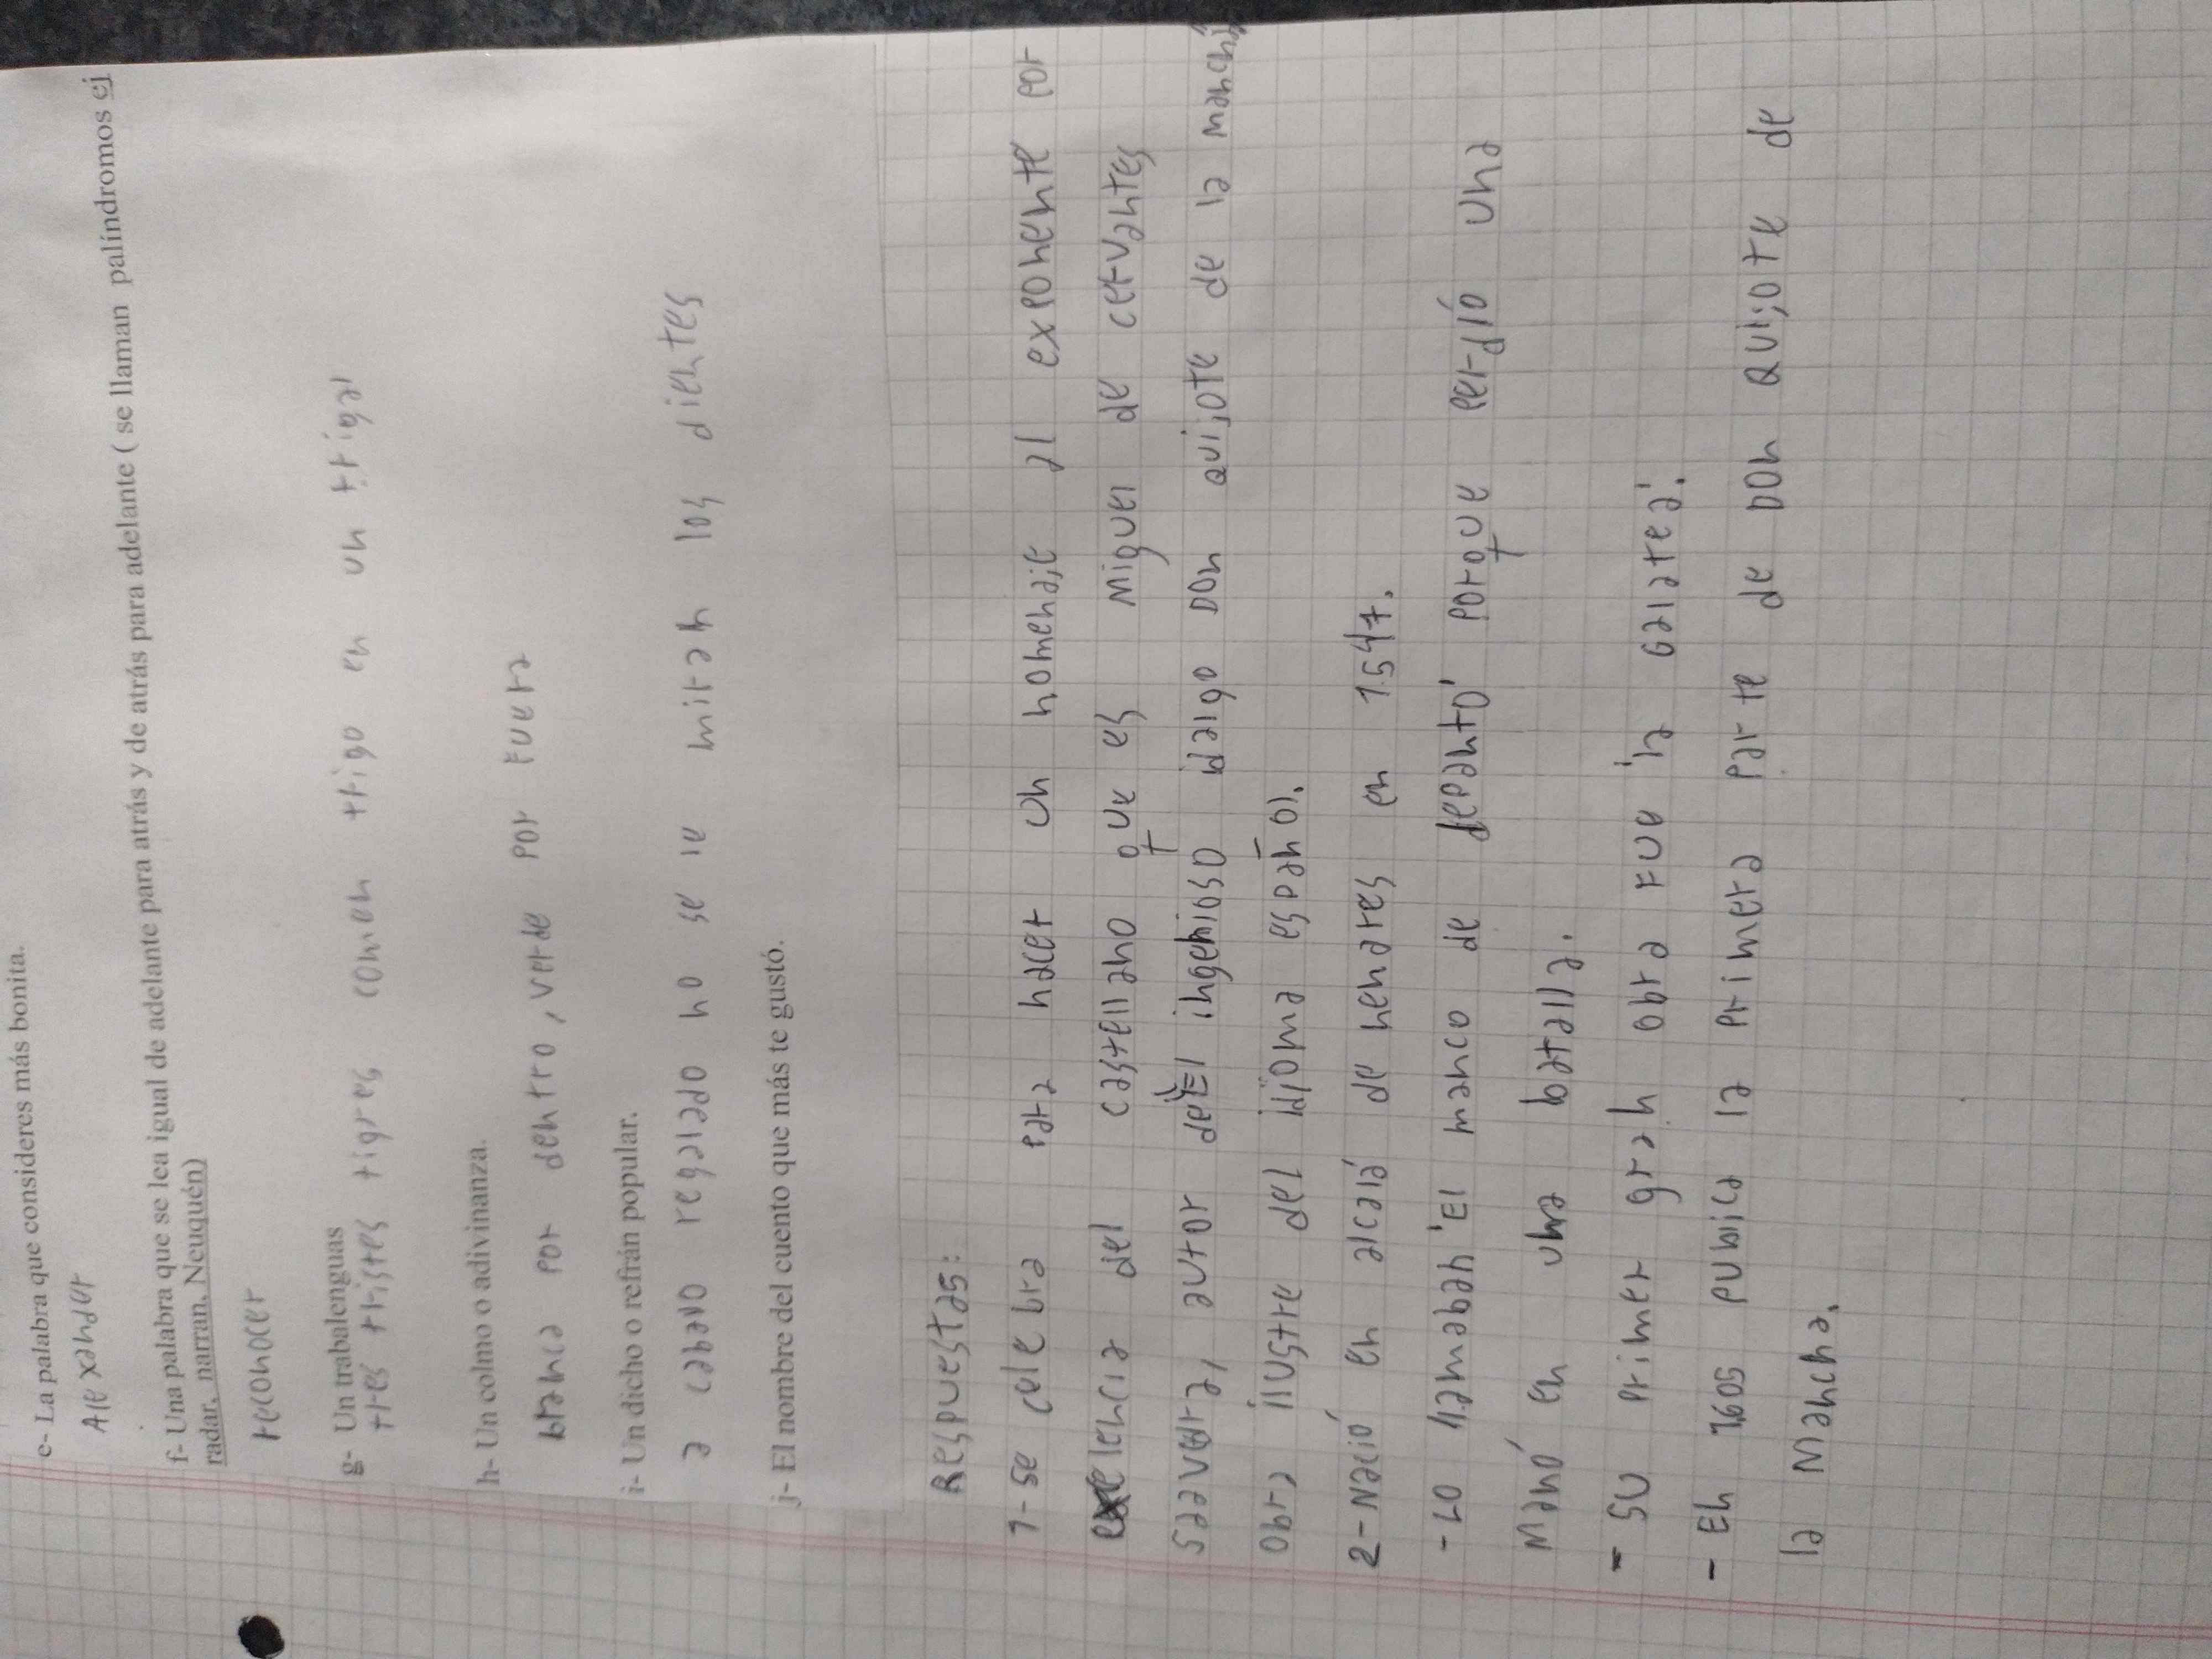 e- La palabra que consideres más bonita.
Alexander
f- Una palabra que se lea igual de adelante para atrás y de atrás para adelante ( se llaman palíndromos ej
radar, narran, Neuquén)
reconocer
g- Un trabalenguas
tres tristes tigres comen trigo en un trigal
h- Un colmo o adivinanza.
blanca por dentro, verde por fuera
i- Un dicho o refrán popular.
a cabavo regalado no se le miran los dientes
j- El nombre del cuento que más te gustó.
Respuestas:
1- se celebra para hacer un homenaje al exponente por
exelencia del castellano que es Miguel de cervantes
Saavedra, autor de "El ingenioso idalgo Don quijote de la mancha"
obra ilustre del idioma español.
2- Nació en alcalá de henares en 1.547.
- Lo llamaban "El manco de lepanto" porque perdió una
Manó en una batalla.
- Su primer gran obra fue "la galatea".
- En 1605 publica la primera parte de Don Quijote de
la Mancha.